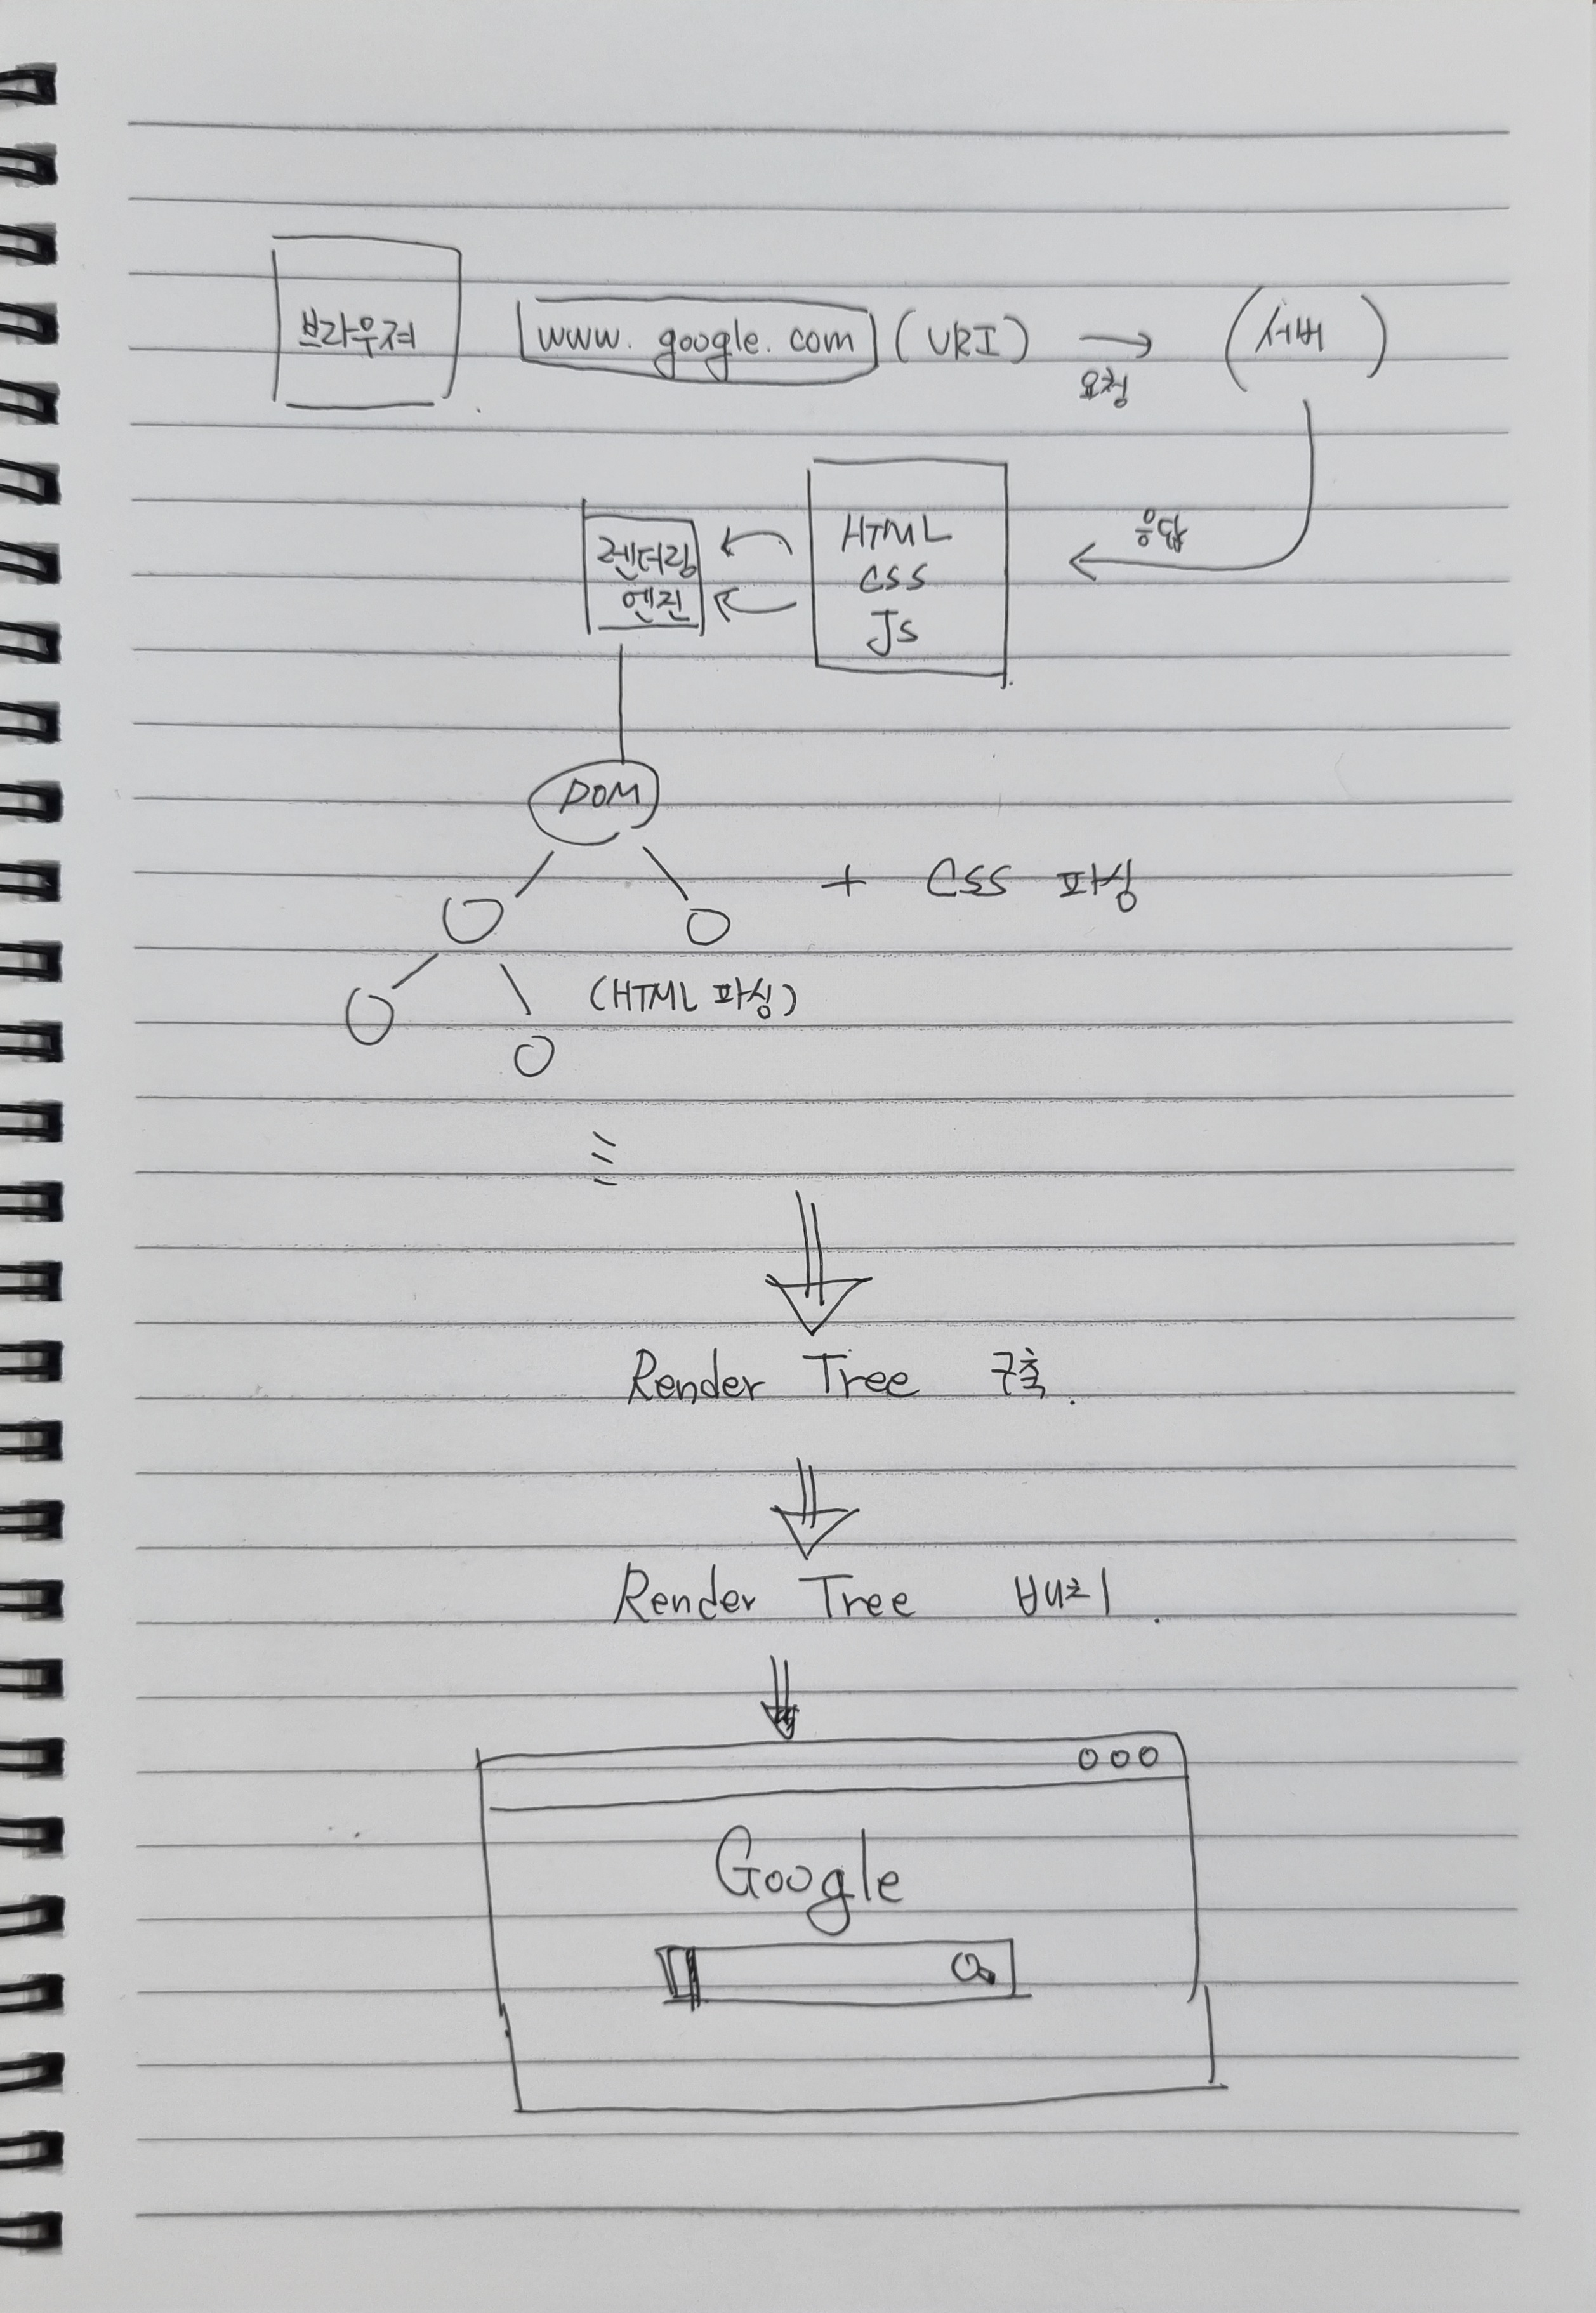 브라우져 www.google.com (URI) → (서버)
요청
응답
HTML
CSS
JS
렌더링
엔진
DOM
+ CSS 파싱
(HTML 파싱)
Render Tree 구축.
Render Tree 배치.
Google